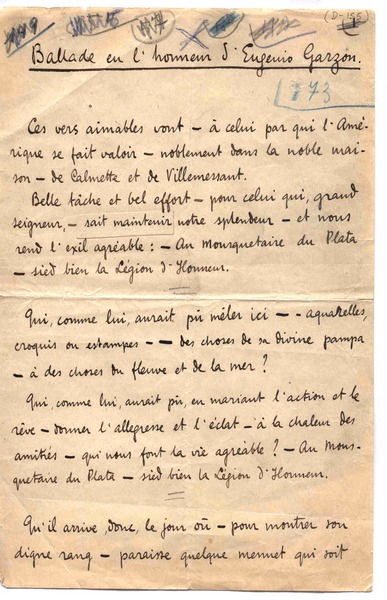 (D-155
Ballade en l'honneur d'Eugenio Garzón.
173
Ces vers aimables vont — à celui par qui l'Amé-
rique se fait valoir — noblement dans la noble mai-
son — de Calmette et de Villemessant.
Belle tâche et bel effort — pour celui qui, grand
seigneur, — sait maintenir notre splendeur — et nous
rend l'exil agréable : — Au Mousquetaire du Plata
— sied bien la Légion d'Honneur.
Qui, comme lui, aurait pû mêler ici — - aquarelles,
croquis ou estampes — - des choses de sa divine pampa
— à des choses du fleuve et de la mer ?
Qui, comme lui, aurait pû, en mariant l'action et le
rêve — donner l'allegresse et l'éclat — à la chaleur des
amitiés — qui nous font la vie agréable ? — Au Mous-
quetaire du Plata — sied bien la Légion d'Honneur.
Qu'il arrive, donc, le jour où — pour montrer son
digne rang — paraisse quelque menuet qui soit